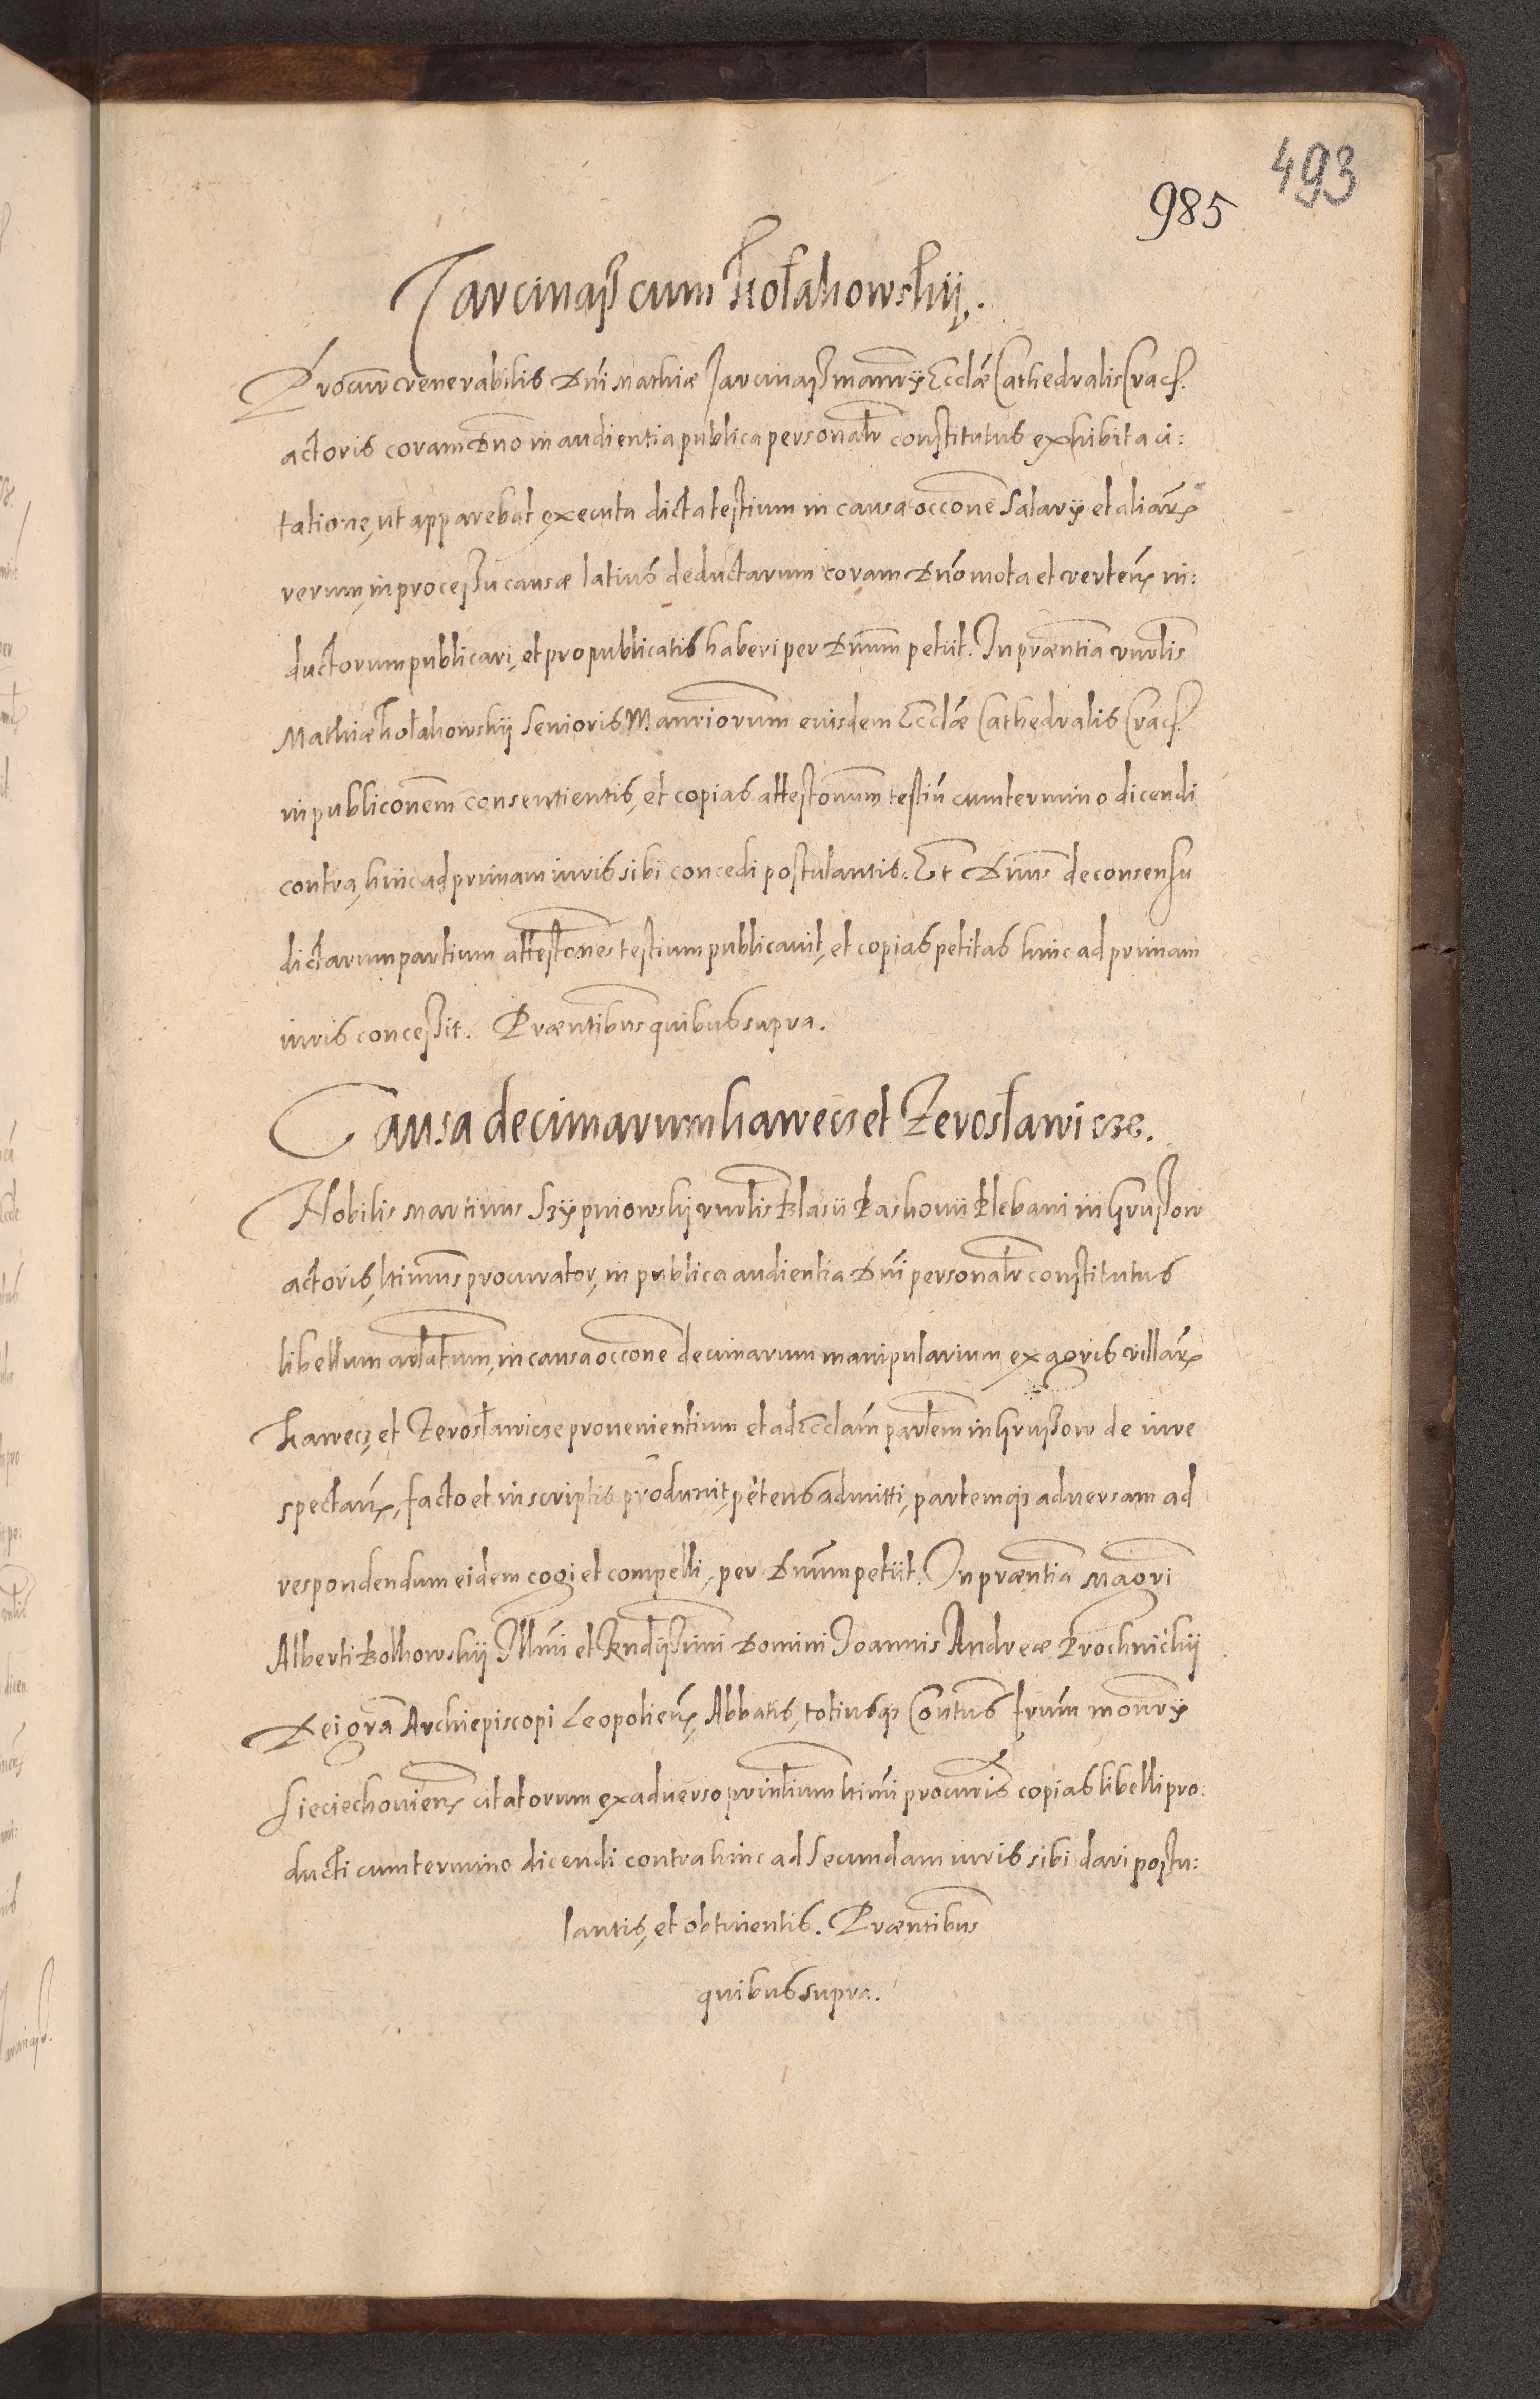 493
985
Jarcinaß cum Kołakowskij.
Procur venerabilis Dni Mathiæ Jarcinaß manrij Ecclæ Cathedralis Crac.
actoris coram Dno in audientia publica personalr constitutus exhibita ci:
tatione, ut apparebat executa dicta testium in causa occone Salarij et aliar
rerum, in processu causæ latius deductarum coram Dno mota et verten in:
ductorum publicari, et pro publicatis haberi per Dnum petiit. In præntia vnrlis
Mathiæ Kołakowskij Senioris Manriorum eiusdem Ecclæ Cathedralis Crac.
in publiconem consentientis, et copias attestonum testiu cum termino dicendi
contra, hinc ad primam iuris sibi concedi postulantis. Et Dnus de consensu
dictarum partium attestones testium publicauit, et copias petitas hinc ad primam
iuris conceßit. Præntibus quibus supra.
Causa decimarum Kawecz et Zerosławicze.
Nobilis Martinus Szÿpniowskij vnrlis Blasii Paskouii Plebani in Grußow
actoris, ltimus procurator, in publica audientia Dni personalr constitutus
libellum arlatum, in causa occone decimarum manipularium ex agris villar
Kawecz, et Zerosławicze prouenientium et ad Ecclam parlem in Grußow de iure
spectan, facto et in scriptis produxit, petens admitti, partemq aduersam ad
respondendum eidem cogi et compelli, per Dnum petiit. In præntia Magri
Alberti Bolkowskij Illmi et Rndißimi Domini Joannis Andreæ Prochnickij
Dei gra Archiepiscopi Leopolien, Abbatis, totiusq Contus frum monrij
Sieciechouien citatorum ex aduerso prinlium ltimi procuris copias libelli pro:
ducti cum termino dicendi contra hinc ad Secundam iuris sibi dari postu:
lantis, et obtinentis. Præntibus
quibus supra.